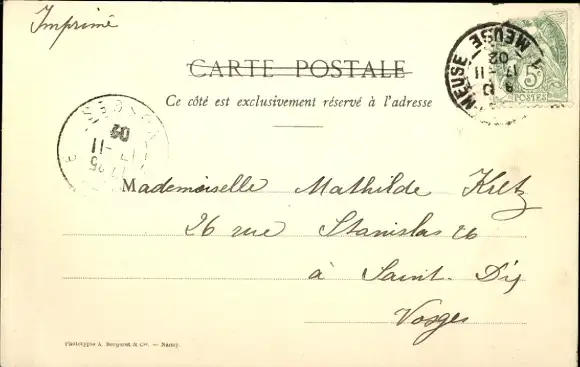 Imprimé
CARTE POSTALE
Ce côté est exclusivement réservé à l'adresse
MEUSE
MEUSE
17-11
02
5c
POSTES
VOSGES
11
02
Mademoiselle Mathilde Kretz
26 rue Stanislas 26
à Saint-Dié
Vosges
Phototypie A. Bergeret & Cie. — Nancy.